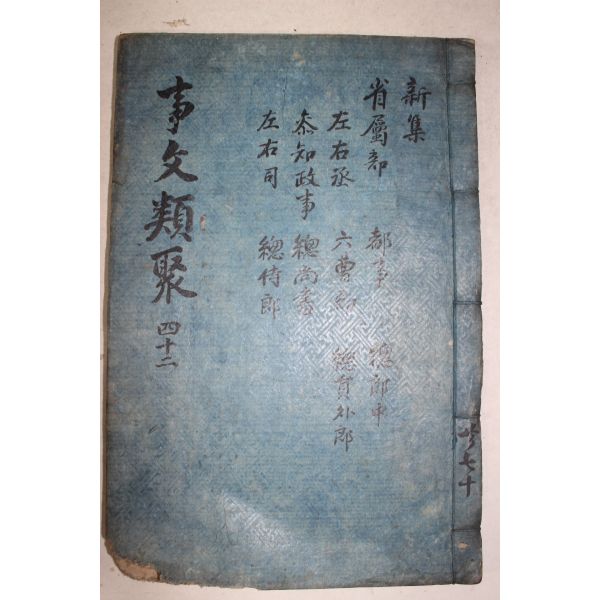 新集
省屬部 都事 總郎中
左右丞 六曹 總員外郎
叅知政事 總尚書
左右司 總侍郎
事文類聚 四十二
共七十